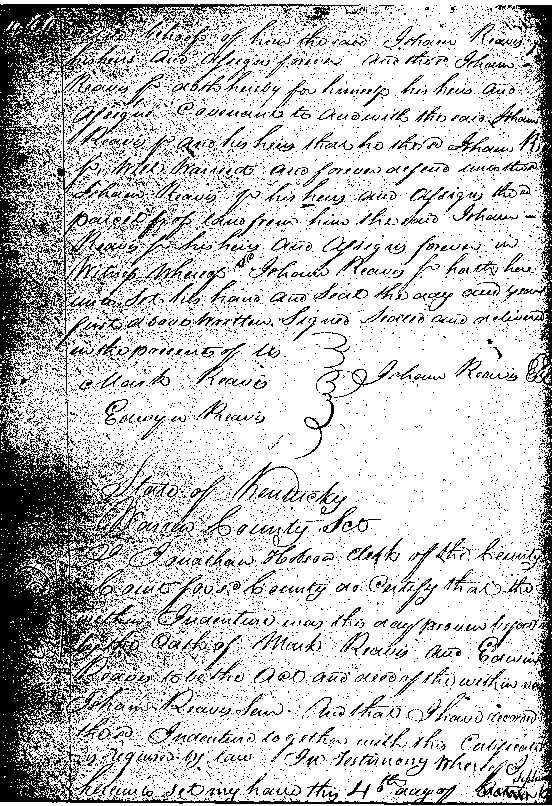 behoof of him the said Isham Reavis
his heirs and assigns forever and the sd Isham
Reavis Jr doth hereby for himself his heirs and
assigns Covenant to and with the said Isham
Reavis Jr and his heirs that he the sd Isham
Will Warrant and forever defend unto the sd
Isham Reavis Jr his heirs and assigns the sd
parcel of land from him the said Isham
Reavis Jr his heirs and assigns forever in
Witness Whereof sd Isham Reavis Jr hath here
unto set his hand and seal the day and year
first above written. Signed sealed and delivered
in the presents of us
Mark Reavis
Isham Reavis
Edwyn Reavis
State of Kentucky
Warren County Sct
I Jonathan Hobson clerk of the County
Court for sd County do certify that the
within Indenture was this day proven before
by the Oath of Mark Reavis and Edwin
Reavis to be the Act and deed of the within
Isham Reavis Senr And that I have recorded
the sd Indenture together with this Certificate
as required by law In Testimony Whereof I
hereunto set my hand this 4th day of